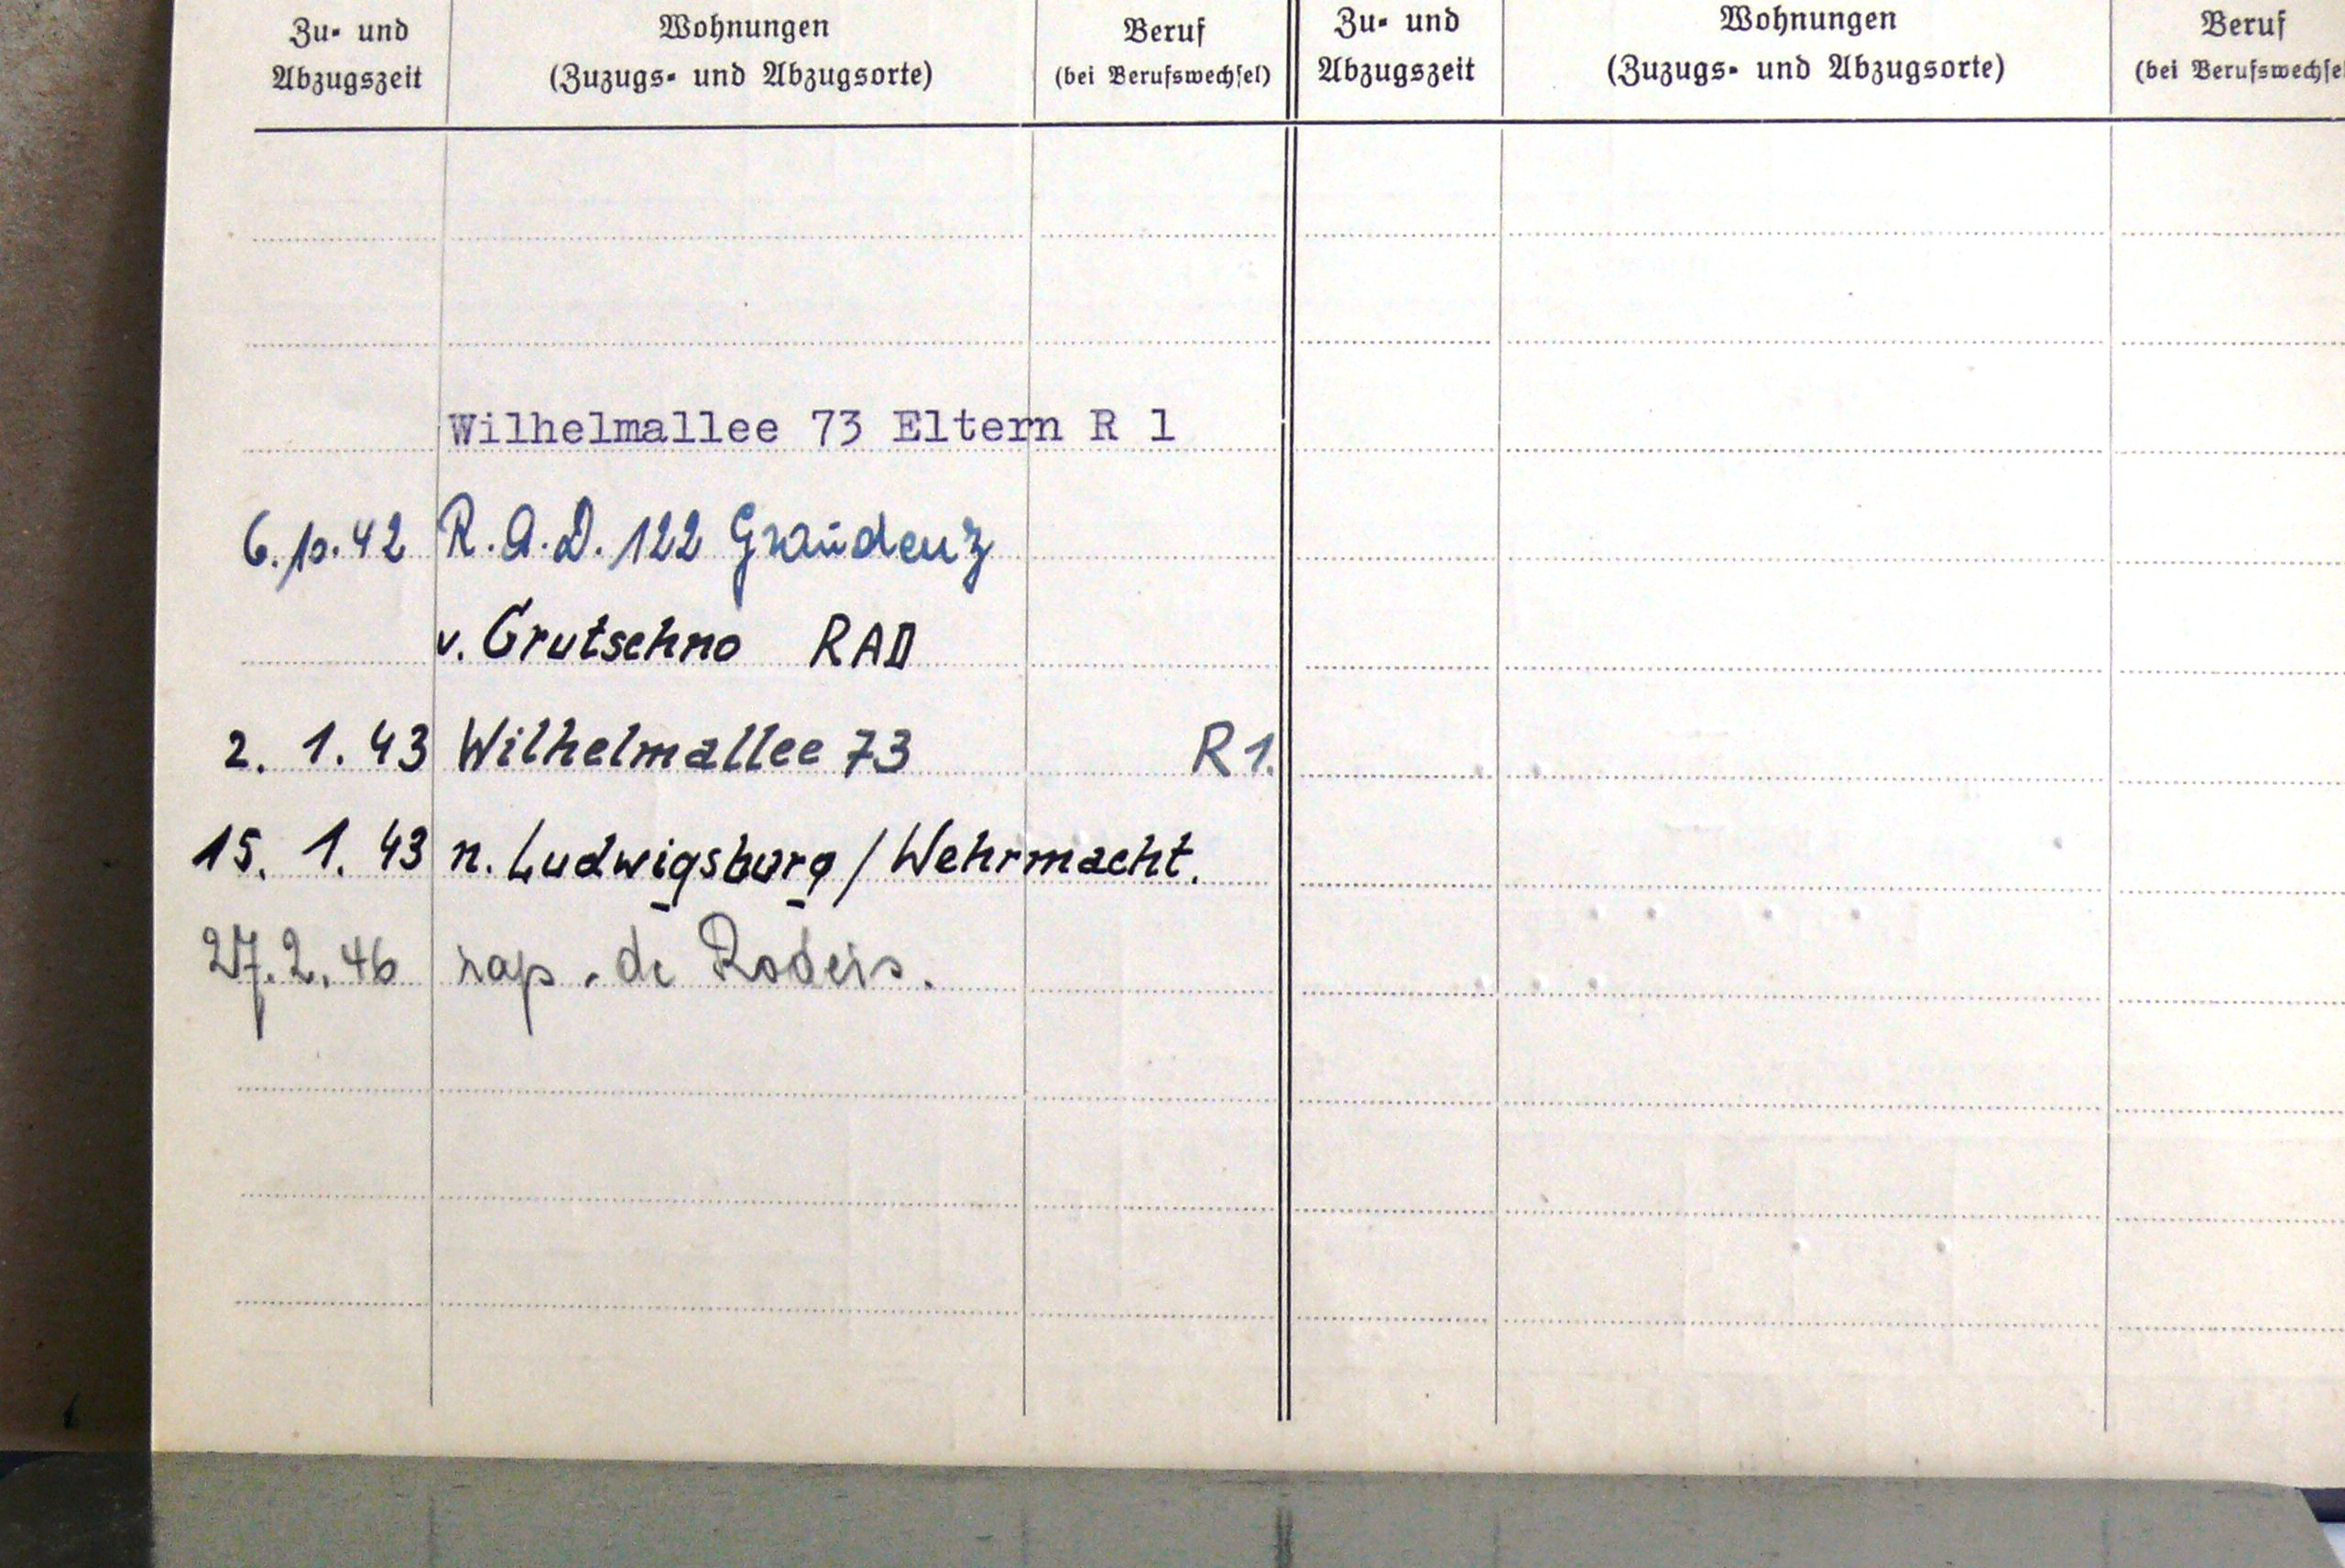 Zu- und Abzugszeit
Wohnungen
(Zuzugs- und Abzugsorte)
Beruf
(bei Berufswechsel)
Zu- und Abzugszeit
Wohnungen
(Zuzugs- und Abzugsorte)
Beruf
(bei Berufswechse
Wilhelmallee 73 Eltern R 1
6.10.42 R.A.D. 122 Graudenz
v. Grutschno RAD
2. 1. 43 Wilhelmallee 73 R 1.
15. 1. 43 n. Ludwigsburg / Wehrmacht.
27.2.46 rap. de